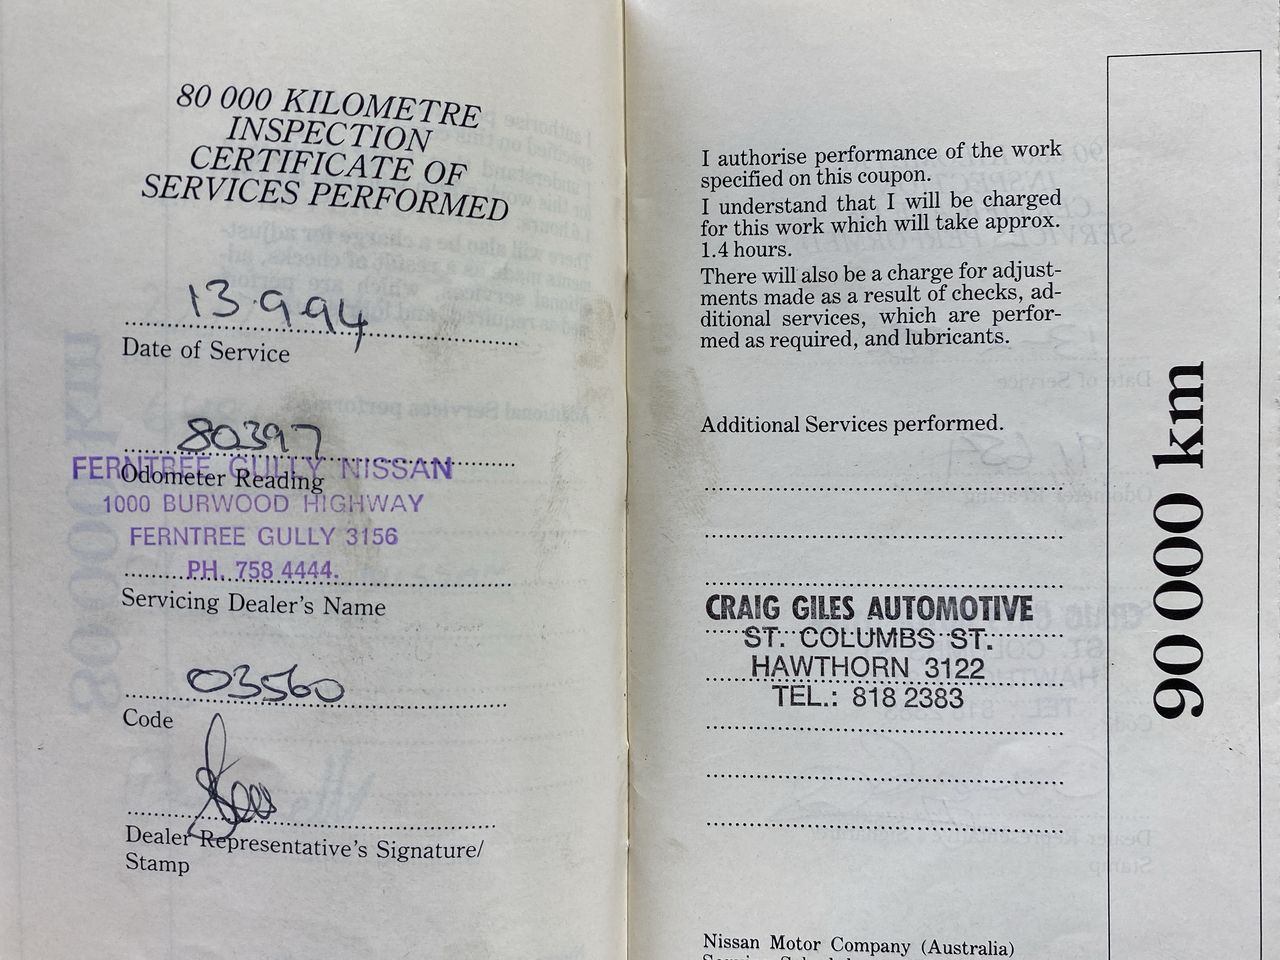 80 000 KILOMETRE
INSPECTION
CERTIFICATE OF
SERVICES PERFORMED
13.9.94
Date of Service
80397
Odometer Reading
FERNTREE GULLY NISSAN
1000 BURWOOD HIGHWAY
FERNTREE GULLY 3156
PH. 758 4444.
Servicing Dealer's Name
03560
Code
Dealer Representative's Signature/
Stamp
I authorise performance of the work
specified on this coupon.
I understand that I will be charged
for this work which will take approx.
1.4 hours.
There will also be a charge for adjust-
ments made as a result of checks, ad-
ditional services, which are perfor-
med as required, and lubricants.
Additional Services performed.
CRAIG GILES AUTOMOTIVE
ST. COLUMBS ST.
HAWTHORN 3122
TEL.: 818 2383
Nissan Motor Company (Australia)
90 000 km